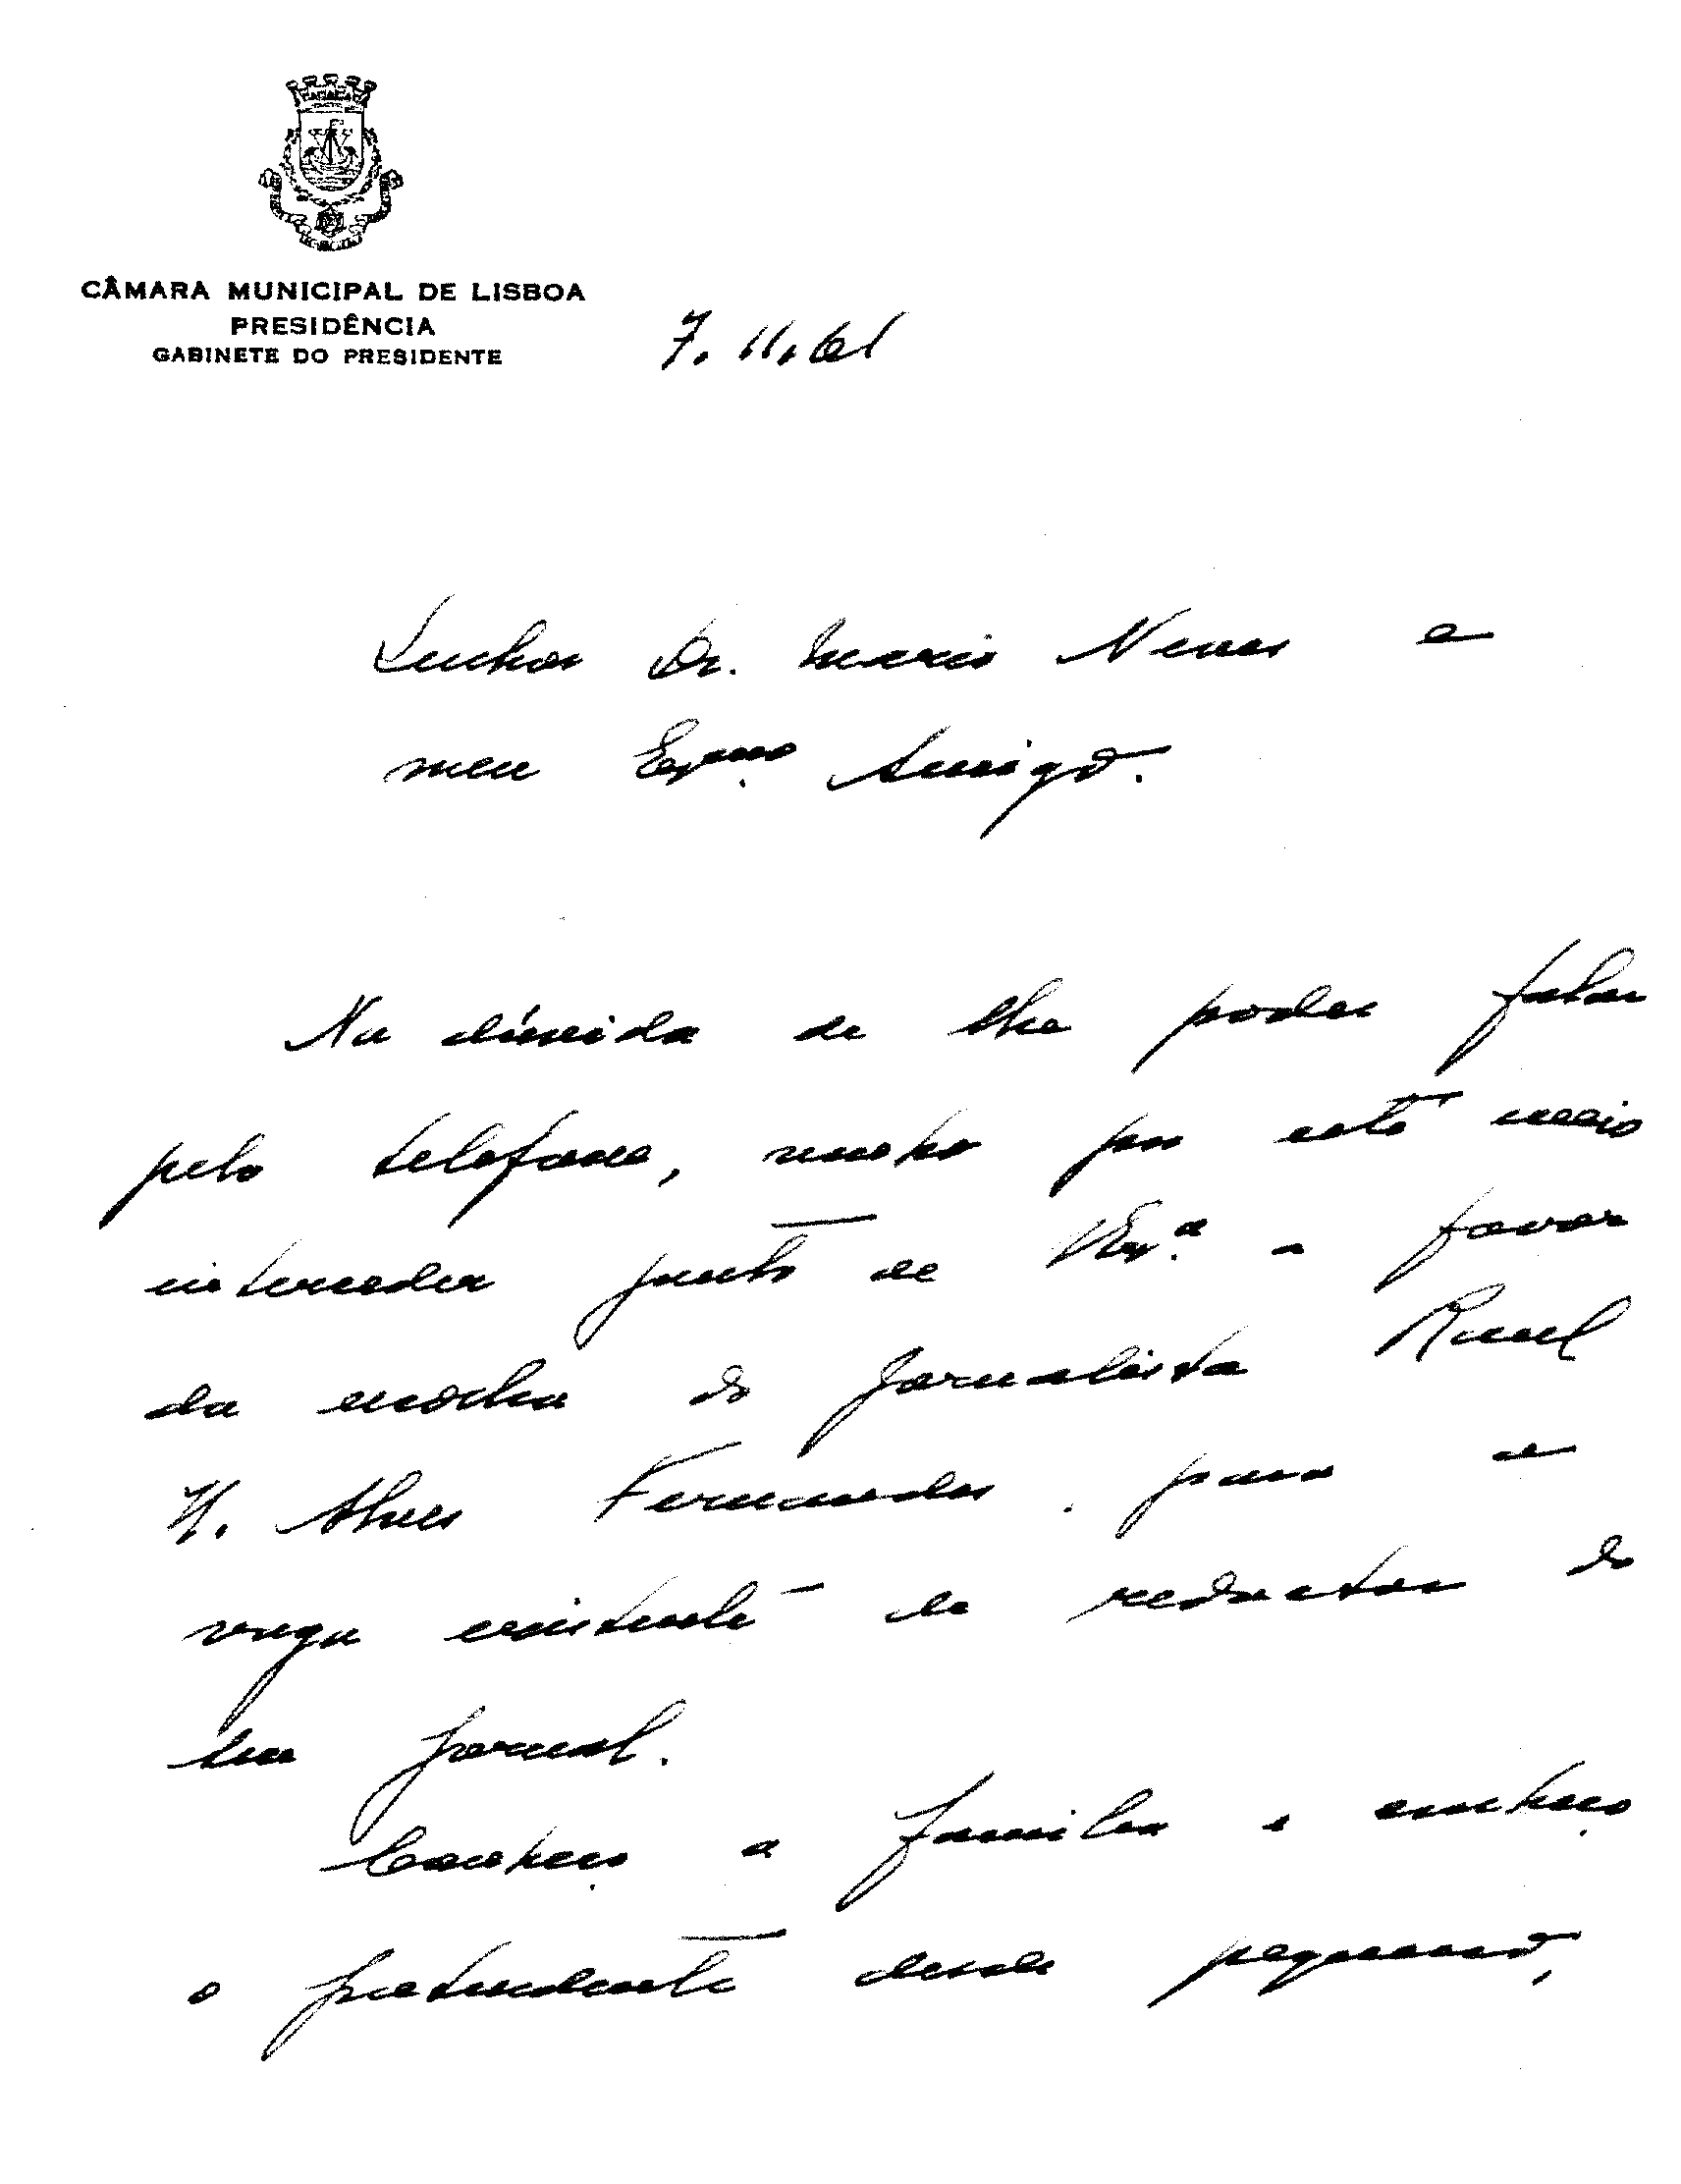 CÂMARA MUNICIPAL DE LISBOA
PRESIDÊNCIA
GABINETE DO PRESIDENTE
7.11.61
Senhor Dr. Mario Neves e
meu Exmo. Amigo.
Na dúvida de lhe poder falar
pelo telefone, venho por este meio
interceder junto de V.Exª. a favor
da escolha do jornalista Raul
H. Alves Fernandes, para a
vaga existente de redactor do
seu jornal.
Conheço a familia e conheço
o pretendente desde pequeno,